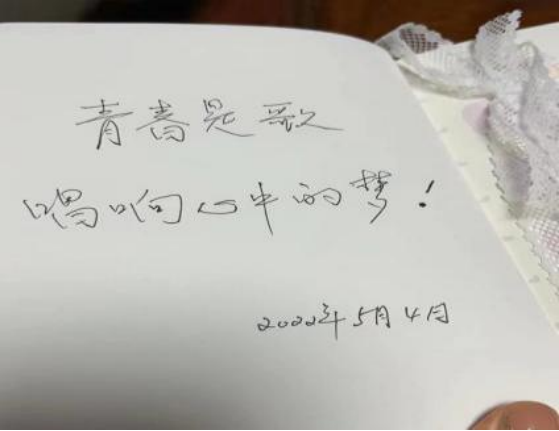 青春是歌
唱响心中的梦！
2022年5月4日